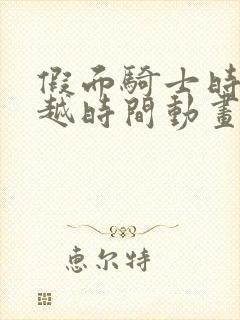 假面騎士時
越時間動畫
惠尔特